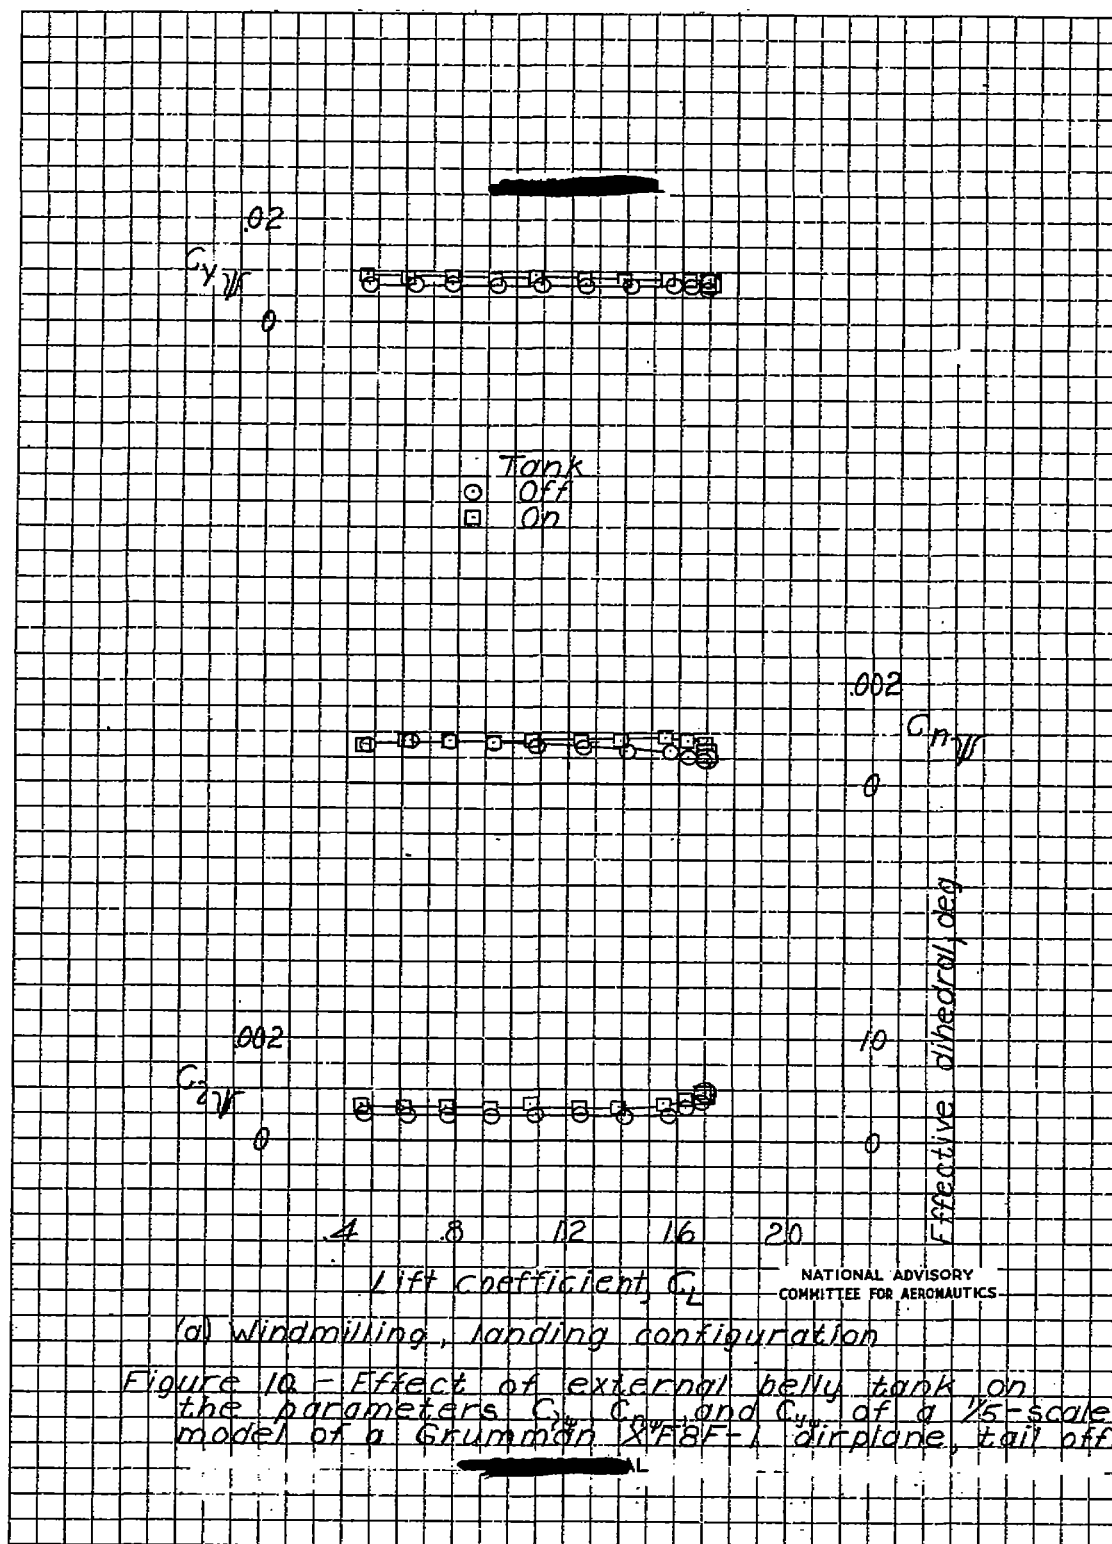 .02
Cyψ
0
Tank
Off
On
.002
Cnψ
0
Effective dihedral, deg
.002
10
Clψ
0
0
.4 .8 1.2 1.6 2.0
Lift coefficient, CL
NATIONAL ADVISORY
COMMITTEE FOR AERONAUTICS
(a) Windmilling, landing configuration
Figure 10.- Effect of external belly tank on
the parameters Clψ, Cnψ, and Cyψ of a 1/5-scale
model of a Grumman XF8F-1 airplane, tail off.